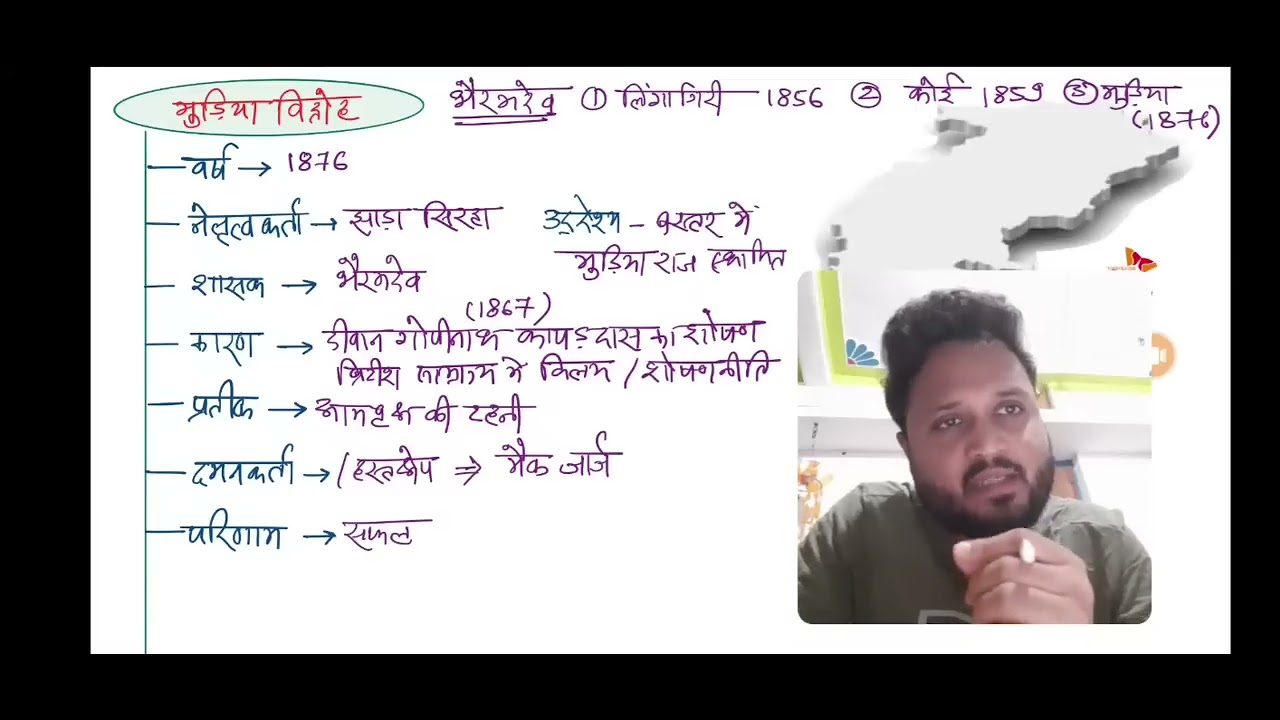 मुड़िया विद्रोह
भैरमदेव ① लिंगागिरी 1856 ② कोई 1859 ③ मुड़िया
(1876)
वर्ष → 1876
नेतृत्वकर्ता → झाड़ा सिरहा
उद्देश्य – बस्तर में
मुड़िया राज स्थापित
शासक → भैरमदेव
(1867)
कारण → दीवान गोपीनाथ कापड़दास का शोषण
ब्रिटीश साम्राज्य में विलय / शोषणनीति
प्रतीक → आमवृक्ष की टहनी
दमनकर्ता → / हस्तक्षेप ⇒ मैक जार्ज
परिणाम → सफल